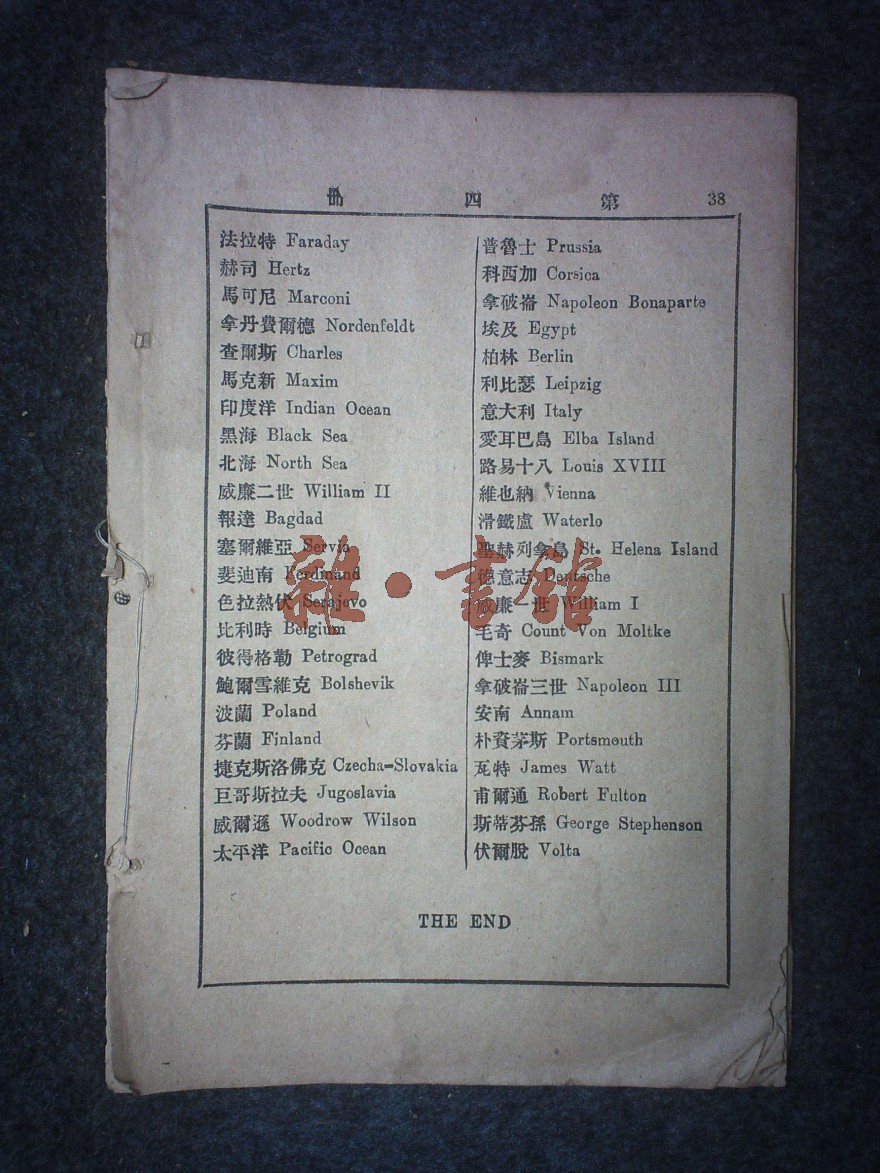 册 四 第 38
法拉特 Faraday
赫司 Hertz
馬可尼 Marconi
拿丹費爾德 Nordenfeldt
查爾斯 Charles
馬克新 Maxim
印度洋 Indian Ocean
黑海 Black Sea
北海 North Sea
威廉二世 William II
報達 Bagdad
塞爾維亞 Servia
斐迪南 Ferdinand
色拉熱伏 Serajevo
比利時 Belgium
彼得格勒 Petrograd
鮑爾雪維克 Bolshevik
波蘭 Poland
芬蘭 Finland
捷克斯洛佛克 Czecha-Slovakia
巨哥斯拉夫 Jugoslavia
威爾遜 Woodrow Wilson
太平洋 Pacific Ocean
普魯士 Prussia
科西加 Corsica
拿破崙 Napoleon Bonaparte
埃及 Egypt
柏林 Berlin
利比瑟 Leipzig
意大利 Italy
愛耳巴島 Elba Island
路易十八 Louis XVIII
維也納 Vienna
滑鐵盧 Waterlo
聖赫列拿島 St. Helena Island
德意志 Deutsche
威廉一世 William I
毛奇 Count Von Moltke
俾士麥 Bismark
拿破崙三世 Napoleon III
安南 Annam
朴資茅斯 Portsmouth
瓦特 James Watt
甫爾通 Robert Fulton
斯蒂芬孫 George Stephenson
伏爾脫 Volta
THE END
雜·書館